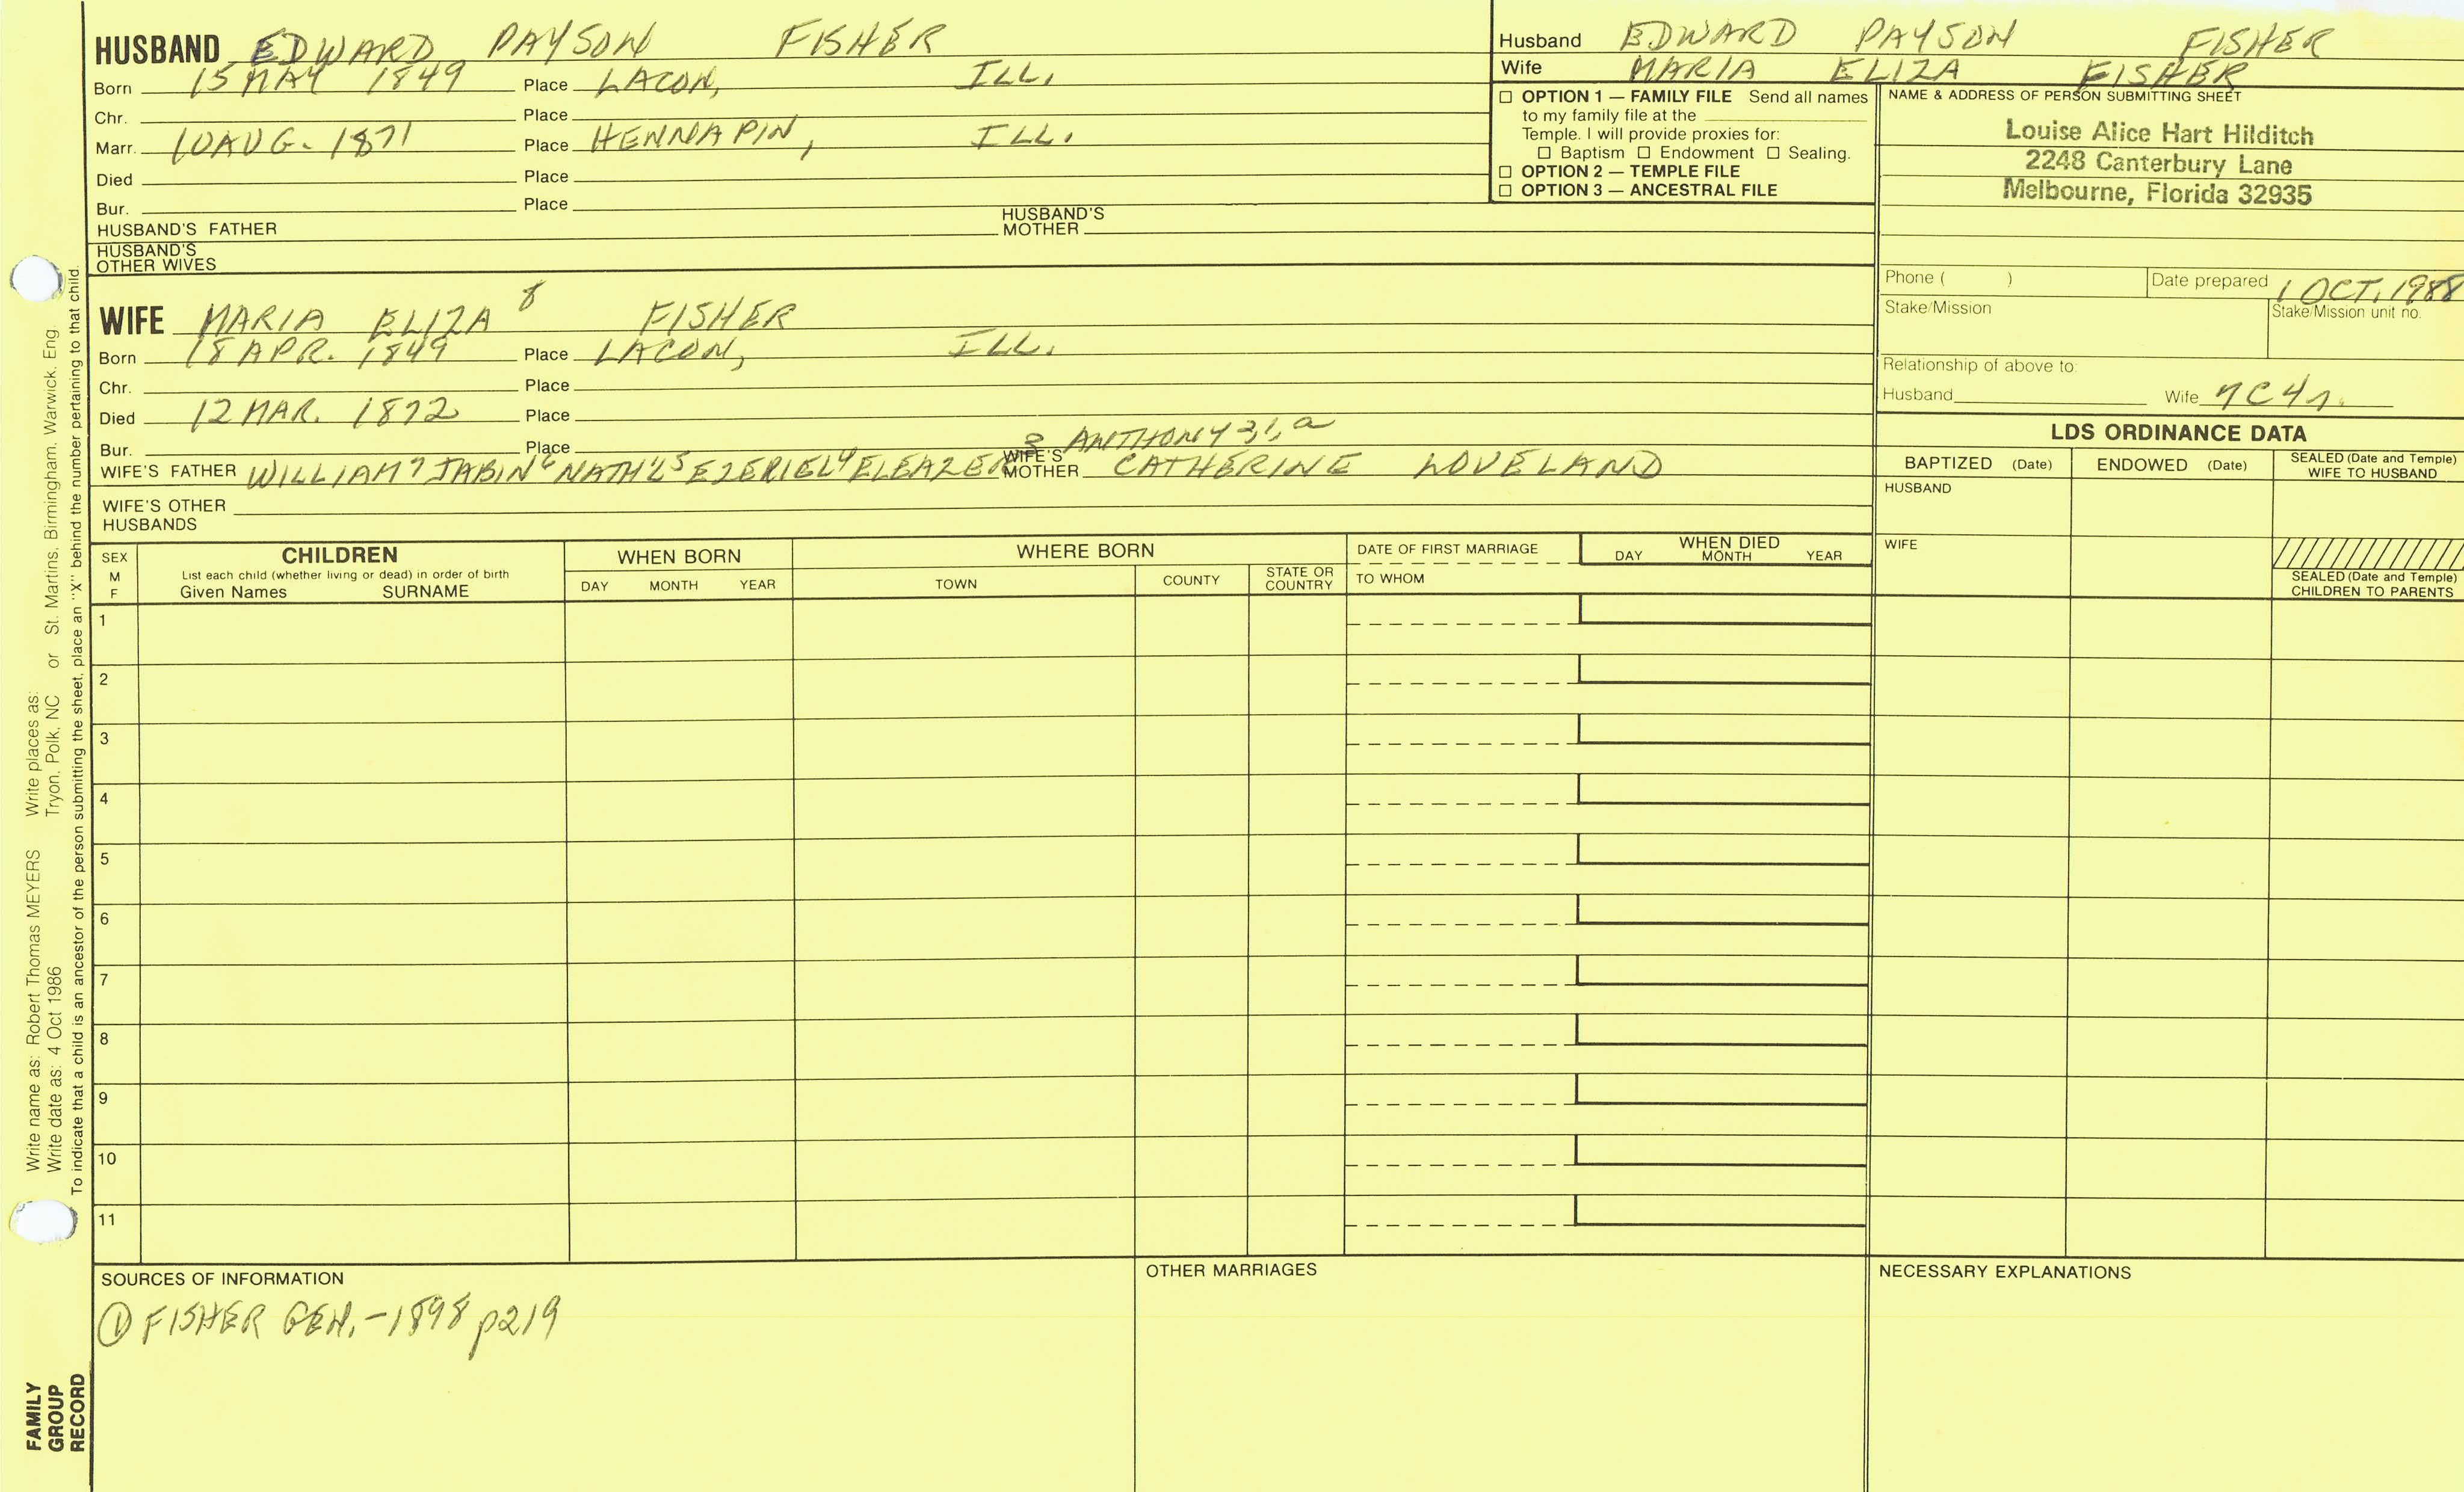 HUSBAND EDWARD PAYSON FISHER
Born 15 MAY 1849 Place LACON, ILL.
Chr. Place
Marr. 10 AUG. 1871 Place HENNAPIN, ILL.
Died Place
Bur. Place
HUSBAND'S FATHER HUSBAND'S MOTHER
HUSBAND'S OTHER WIVES
WIFE MARIA ELIZA 8 FISHER
Born 18 APR. 1849 Place LACON, ILL.
Chr. Place
Died 12 MAR. 1872 Place
Bur. Place
3 ANTHONY 3,1,a
WIFE'S FATHER WILLIAM 7 JABIN 6 NATH'L 5 EZERIEL 4 ELEAZER WIFE'S MOTHER CATHERINE LOVELAND
WIFE'S OTHER HUSBANDS
Husband EDWARD PAYSON FISHER
Wife MARIA ELIZA FISHER
☐ OPTION 1 — FAMILY FILE Send all names
to my family file at the
Temple. I will provide proxies for:
☐ Baptism ☐ Endowment ☐ Sealing.
☐ OPTION 2 — TEMPLE FILE
☐ OPTION 3 — ANCESTRAL FILE
NAME & ADDRESS OF PERSON SUBMITTING SHEET
Louise Alice Hart Hilditch
2248 Canterbury Lane
Melbourne, Florida 32935
Phone ( ) Date prepared 1 OCT. 1988
Stake/Mission Stake/Mission unit no.
Relationship of above to:
Husband Wife 7C4r.
LDS ORDINANCE DATA
BAPTIZED (Date) ENDOWED (Date) SEALED (Date and Temple) WIFE TO HUSBAND
HUSBAND
WIFE
SEALED (Date and Temple)
CHILDREN TO PARENTS
SEX M F
CHILDREN
List each child (whether living or dead) in order of birth
Given Names SURNAME
WHEN BORN
DAY MONTH YEAR
WHERE BORN
TOWN COUNTY STATE OR COUNTRY
DATE OF FIRST MARRIAGE
TO WHOM
WHEN DIED
DAY MONTH YEAR
1
2
3
4
5
6
7
8
9
10
11
SOURCES OF INFORMATION
① FISHER GEN. - 1898 p219
OTHER MARRIAGES
NECESSARY EXPLANATIONS
Write name as: Robert Thomas MEYERS Write places as:
Write date as: 4 Oct 1986 Tryon, Polk, NC or St. Martins, Birmingham, Warwick, Eng
To indicate that a child is an ancestor of the person submitting the sheet, place an "X" behind the number pertaining to that child.
FAMILY
GROUP
RECORD